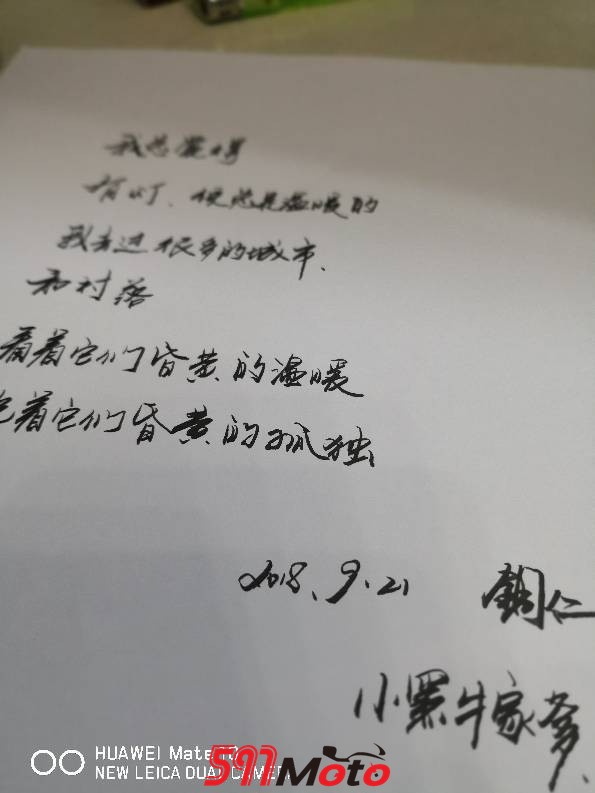 我总觉得
有灯、便总是温暖的
我去过很多的城市、
和村落
看着它们昏黄的温暖
着它们昏黄的孤独
2018.9.21 铜仁
小黑牛家爹
HUAWEI Mate 10
NEW LEICA DUAL CAMERA
597Moto